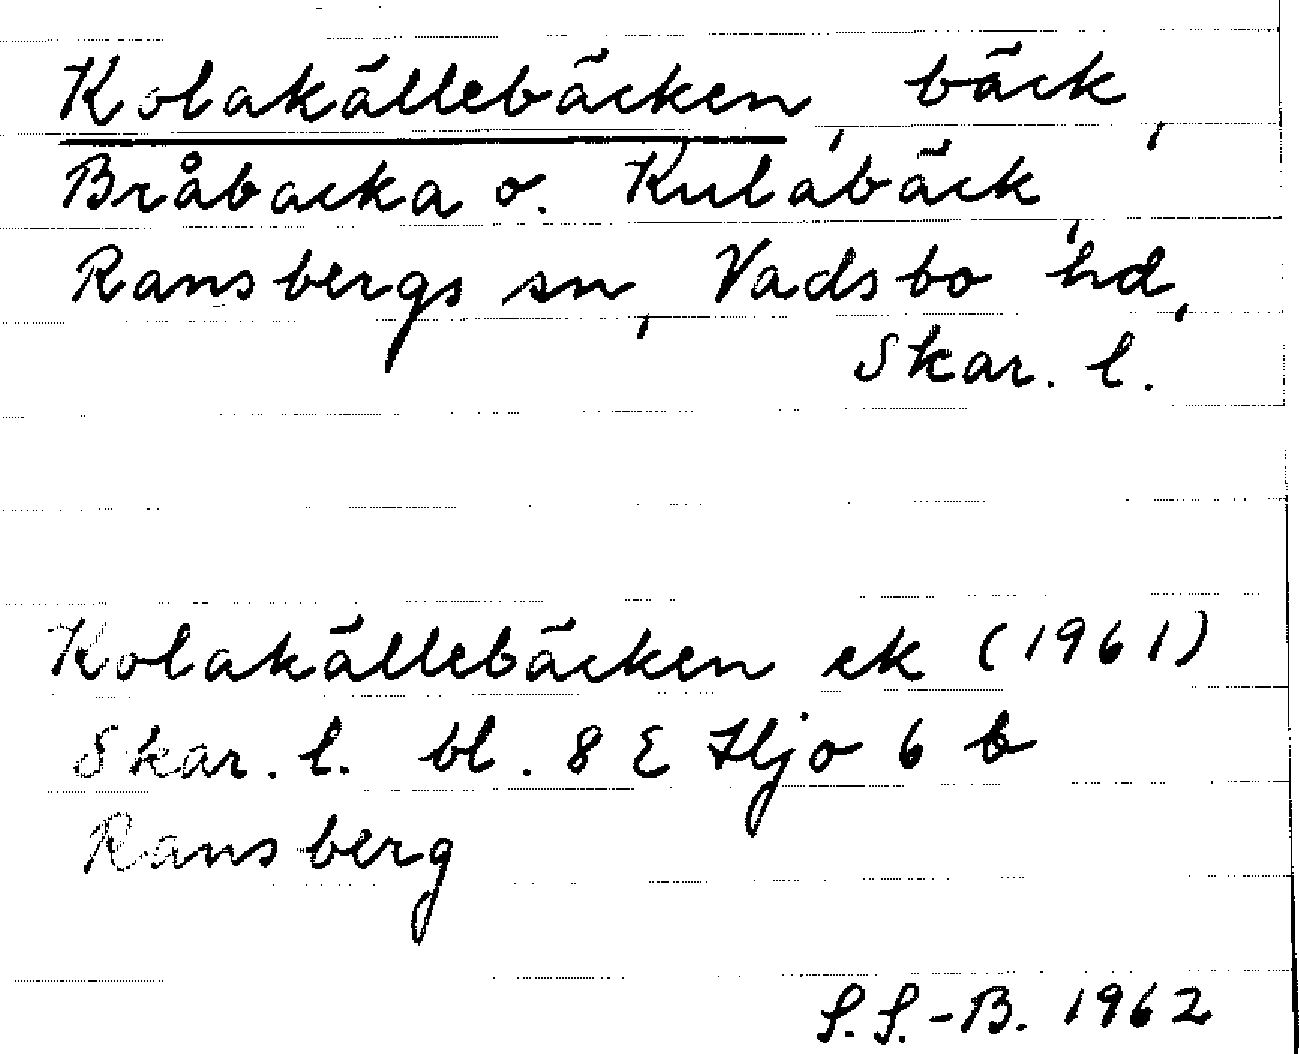 Kolakällebäcken, bäck,
Bråbacka o. Kulabäck,
Ransbergs sn, Vadsbo hd,
Skar. l.
Kolakällebäcken ek (1961)
Skar. l. bl. 8 E Hjo 6 b
Ransberg
S.S.-B. 1962